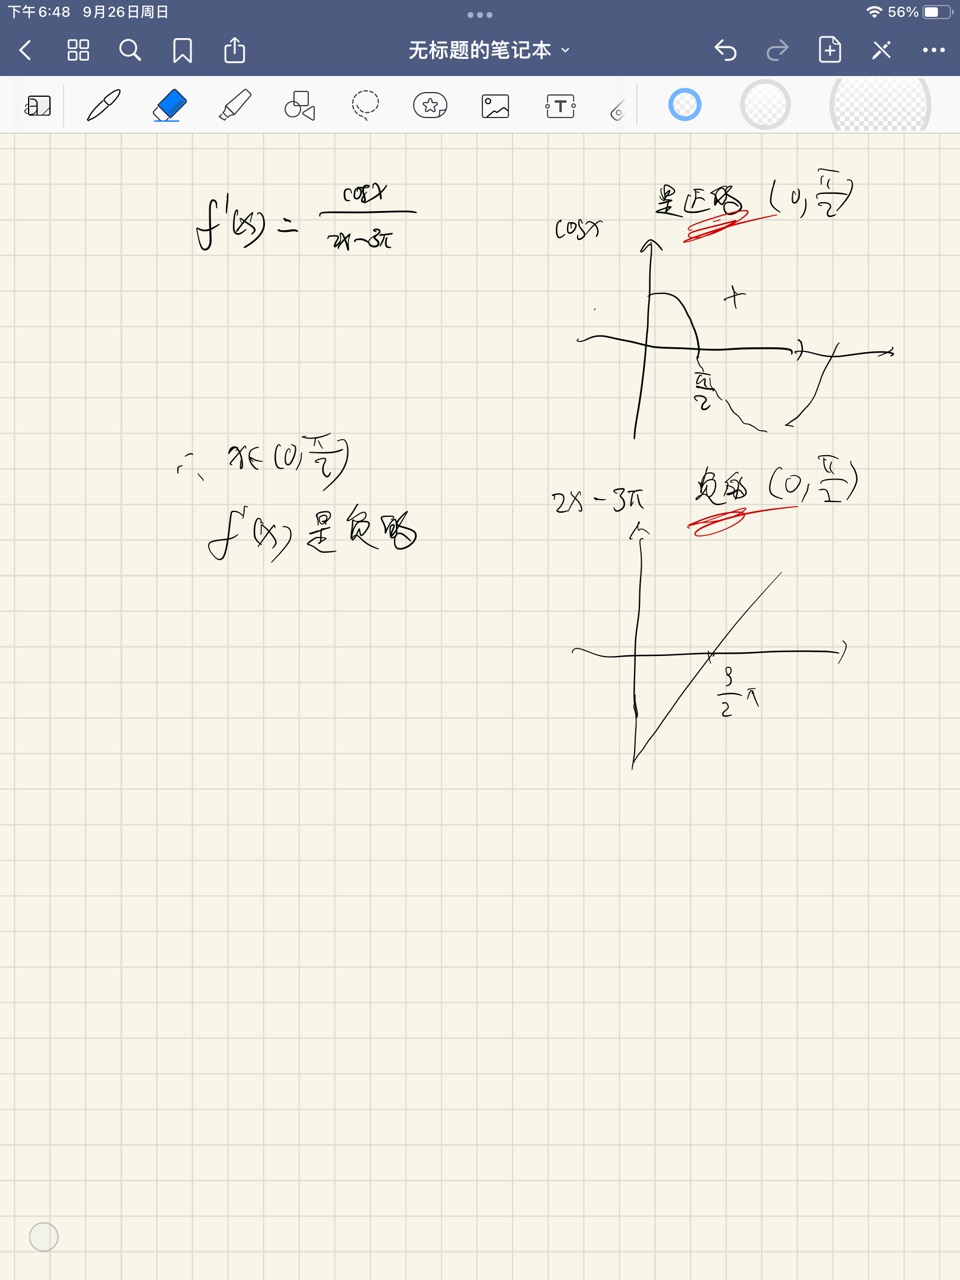 下午6:48 9月26日周日
56%
无标题的笔记本
T
f'(x) = cosx / 2x-3π
cosx 是正的 (0, π/2)
+
π/2
∴ x∈(0, π/2)
f'(x) 是负的
2x-3π 负的 (0, π/2)
3/2 π